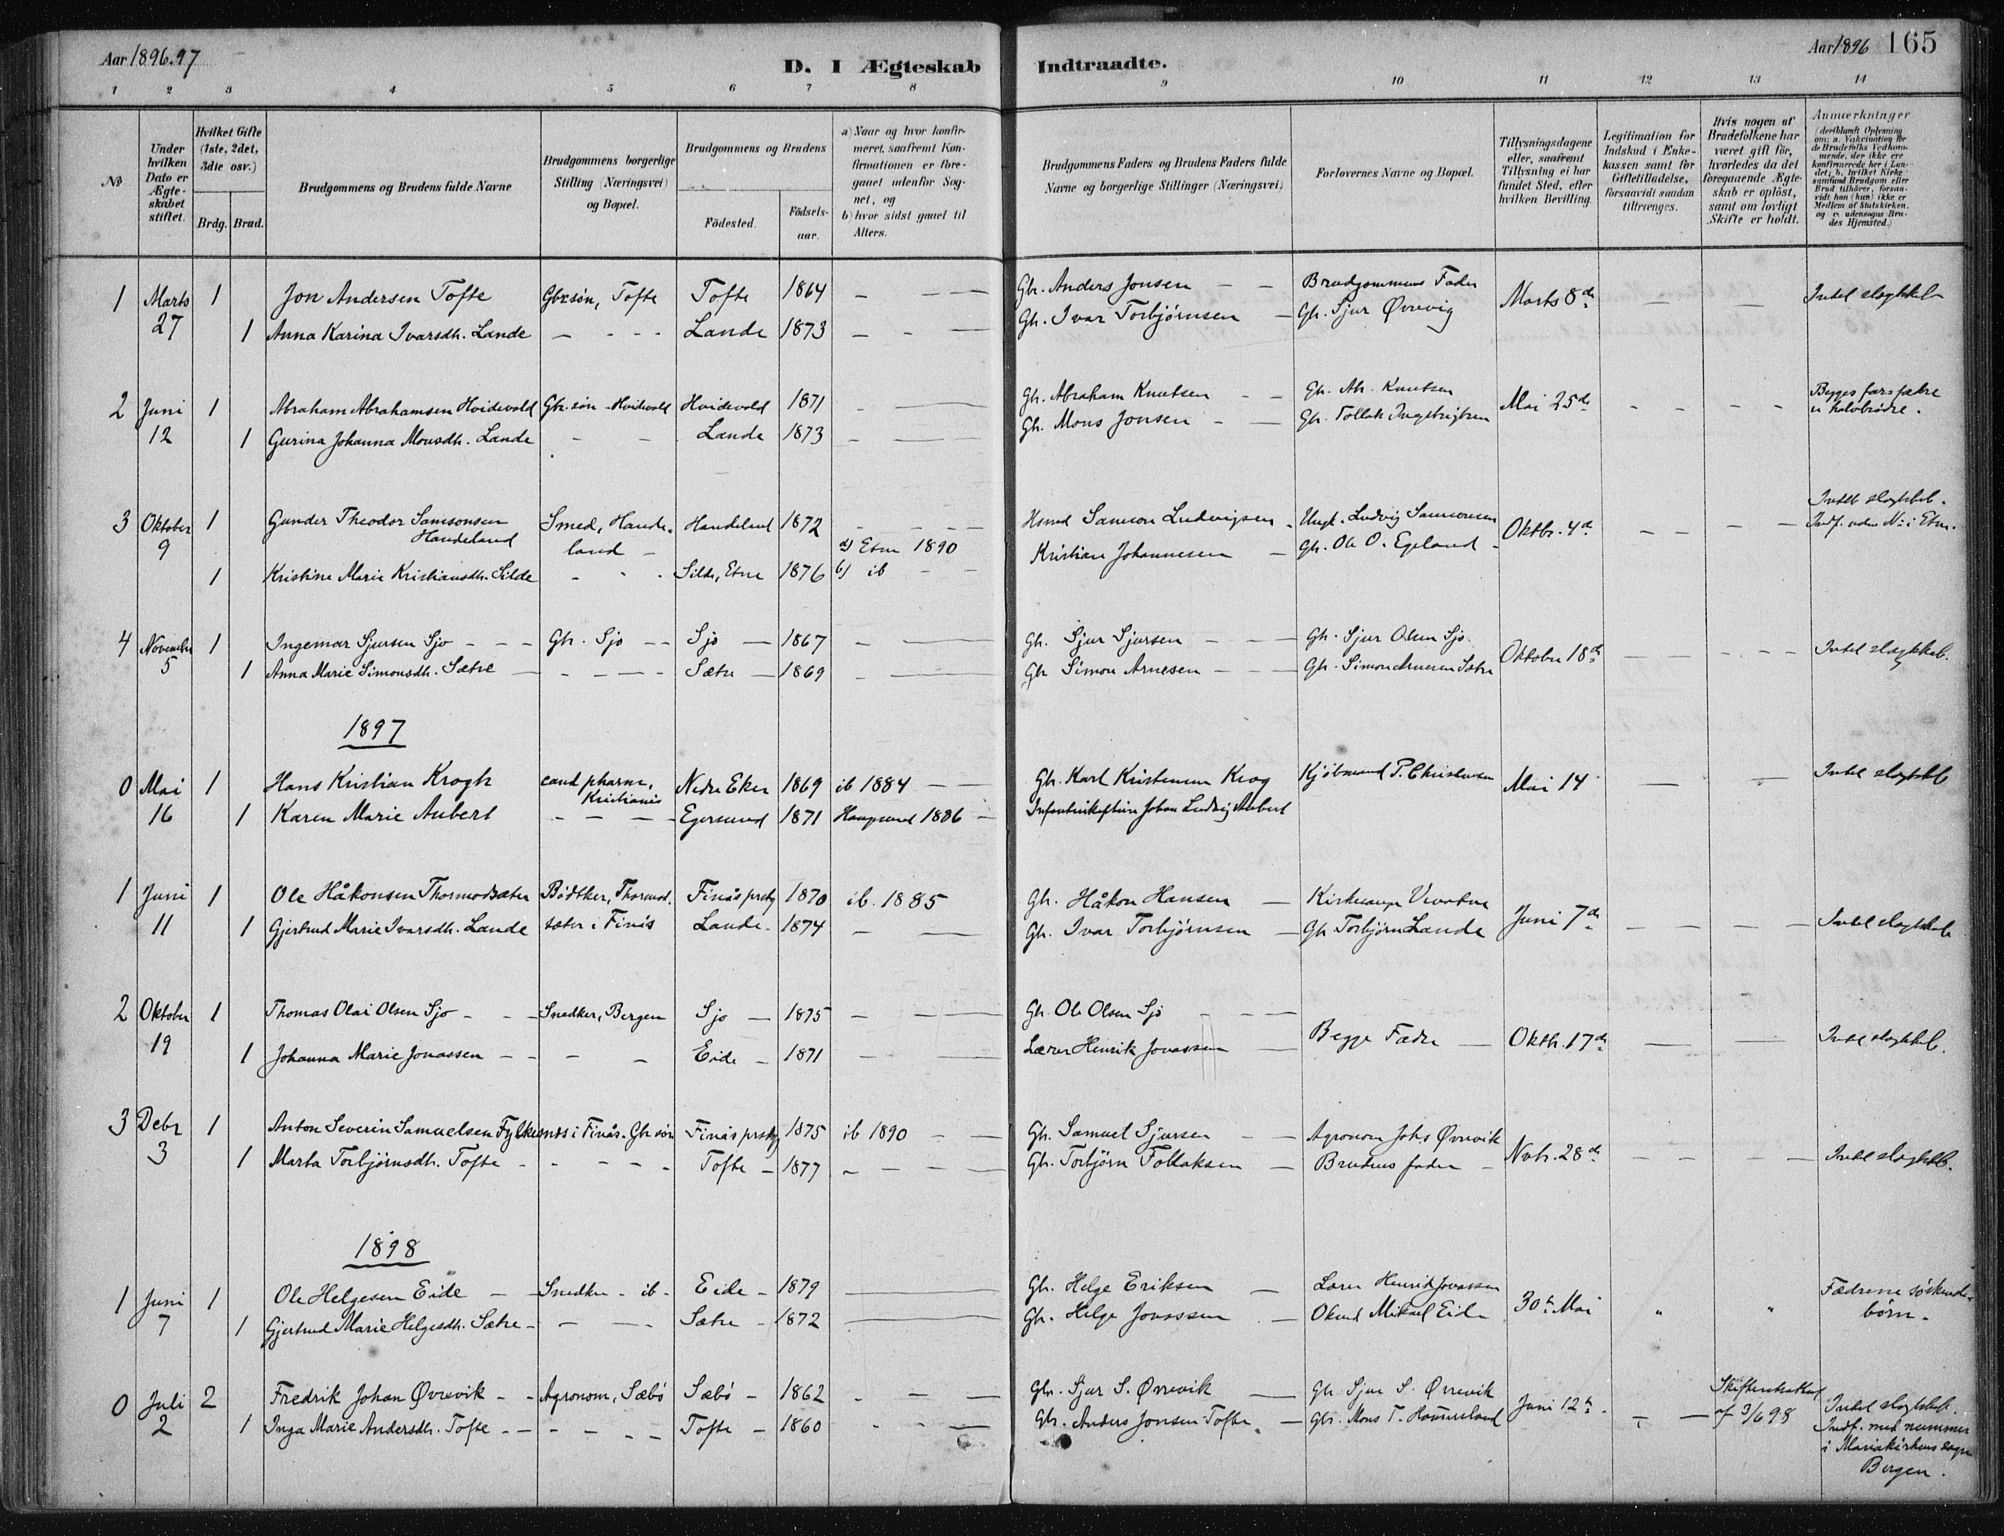 Aar 1896.97
D. I Ægteskab Indtraadte.
Aar 1896 165
1 2 3 4 5 6 7 8 9 10 11 12 13 14
No
Under hvilken Dato er Ægteskabet stiftet.
Hvilket Gifte (1ste, 2det, 3die osv.)
Brdg. Brud.
Brudgommens og Brudens fulde Navne
Brudgommens borgerlige Stilling (Næringsvei) og Bopæl.
Brudgommens og Brudens
Fødested.
Fødsels-aar.
a) Naar og hvor konfirmeret, saafremt Konfirmationen er foregaaet udenfor Sognet, og
b) hvor sidst gaaet til Alters.
Brudgommens Faders og Brudens Faders fulde Navne og borgerlige Stillinger (Næringsvei)
Forlovernes Navne og Bopæl.
Tillysningsdagene eller, saafremt Tillysning ei har fundet Sted, efter hvilken Bevilling.
Legitimation for Indskud i Enkekassen samt for Giftetilladelse, forsaavidt saadan tiltrænges.
Hvis nogen af Brudefolkene har været gift før, hvorledes da det foregaaende Ægteskab er opløst, samt om lovligt Skifte er holdt.
Anmærkninger
(deriblandt Oplysning om: a. Vakcination for de Brudefolks Vedkommende, der ikke ere konfirmerede her i Landet; b. hvilket Kirkesamfund Brudgom eller Brud tilhører, forsaavidt han (hun) ikke er Medlem af Statskirken, og c. udensogns Brudes Hjemsted.)
1 Marts 1 Jon Andersen Tofte Gbr.søn, Tofte Tofte 1864 — — — Gbr. Anders Jonsen — — Brudgommens Fader Marts 8de — — Intet slægtskab
27 1 Anna Karina Ivarsdtr. Lande — - - - Lande 1873 — — — Gbr. Ivar Torbjørnsen — Gbr. Sjur Øvrevig
2 Juni 1 Abraham Abrahamsen Hvidevold Gbr.søn - Hvidevold Hvidevold 1871 — — Gbr. Abraham Knutsen — — Gbr. Abr. Knutsen Mai 25de - - - - Begges farsfædre
er halvbrødre.
12 1 Gurina Johanna Monsdtr. Lande - - Lande 1873 — — Gbr. Mons Jonsen - — Gbr. Tollak Ingebrigtsen
3 Oktober 1 Gunder Theodor Samsonsen Smed, Hande- Handeland 1872 - - - Husmd Samson Ludvigsen - Ungk. Ludvig Samsonsen Oktbr. 4de - - - — Intet slægtskab.
Handeland land — a) Etne 1890 Indf. uden No i Etne.
9 1 Kristine Marie Kristiansdtr. Silde - - - Silde, Etne 1876 b) ib - — Kristian Johannesen — Gbr. Ole O. Egeland -
4 November 1 Ingemar Sjursen Sjo - - - Gbr. Sjo — Sjo — 1867 - — Gbr. Sjur Sjursen - - — Gbr. Sjur Olsen Sjo. Oktober 18de — - - - Intet slægtskab.
5 1 Anna Marie Simonsdtr. Sætre — - - — Sætre 1869 - — Gbr Simon Arnesen - - — Gbr. Simon Arnesen Sætre
1897
0 Mai 1 Hans Kristian Krogh cand pharm, Nedre Eker 1869 ib 1884 — — Gbr. Karl Kristensen Krog Kjøbmand P. Christensen Mai 14 — - Intet slægtskb
Kristiania
16 1 Karen Marie Aubert - - - — Egersund 1871 Haugesund 1886 — Johan Ludvig Aubert
1 Juni 1 Ole Håkonsen Thormodsæter Bødtker, Thormod- Finås prstg 1870 ib. 1885 Gbr. Håkon Hansen — Kirkesanger Juni 7de - - - - Intet slægtskab
11 1 Gjertrud Marie Ivarsdtr. Lande sæter i Finås Lande - 1874 — — Gbr. Ivar Torbjørnsen — Gbr Torbjørn Lande
2 Oktober 1 Thomas Olai Olsen Sjo - - — Snedker, Bergen Sjo — 1875 — — — Gbr. Ole Olsen Sjo - — — Begge Fædre — Oktbr. 17de — — Intet slægtskb.
19 1 Johanna Marie Jonassen - - - - Eide - 1871 — — Lærer Henrik Jonassen —
3 Debr 1 Anton Severin Samuelsen Fylkesnes i Finås - Gbr søn Finås prstg 1875 ib 1890 — — Gbr. Samuel Sjursen — - Agronom Johs Øvrevik Novbr. 28de - - - - Intet slægtskb.
3 1 Marta Torbjørnsdtr. Tofte - - - - Tofte - 1877 - - - - Gbr. Torbjørn Tollaksen — Brudens fader -
1898
1 Juni 1 Ole Helgesen Eide — Snedker - ib - Eide - 1879 — Gbr. Helge Eriksen — Lærer Henrik Jonassen 30te Mai " " Fædrene søskende-
børn.
7 1 Gjertrud Marie Helgesdtr. Sætre - - - - Sætre - 1872 — Gbr. Helge Jonassen — Mikael Eide
0 Juli 2 Fredrik Johan Øvrevik - - Agronom, Sæbø Sæbø - 1862 - - - Gbr. Sjur S. Øvrevik — Gbr Sjur S. Øvrevik Juni 12te - - — Skifteattest Intet slægtskb.
2 1 Inga Marie Andersdtr. Tofte - - - - - Tofte - 1860 - - - Gbr. Anders Jonsen Tofte — Gbr. Mons T. Hammersland af 3/6 98 Indf. med nummer
i Mariakirkens sogn
Bergen.